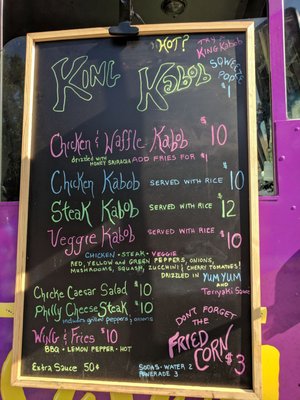 HOT? TRY A
KING Kabob
King Kabob
SWEETE
POP
$1
Chicken & Waffle Kabob $10
drizzled with HONEY SRIRACHA ADD FRIES FOR $1
Chicken Kabob SERVED WITH RICE $10
Steak Kabob SERVED WITH RICE $12
Veggie Kabob SERVED WITH RICE $10
CHICKEN - STEAK - VEGGIE
RED, YELLOW and GREEN PEPPERS, ONIONS,
MUSHROOMS, SQUASH, ZUCCHINI & CHERRY TOMATOES!
DRIZZLED IN YUM YUM
and Teriyaki Sauce
Chicke Caesar Salad $10
Philly CheeseSteak $10
includes grilled peppers & onions
Wing & Fries $10
BBQ • LEMON PEPPER • HOT
DON'T FORGET
THE
FRIED
CORN $3
Extra Sauce 50¢
SODAS - WATER 2